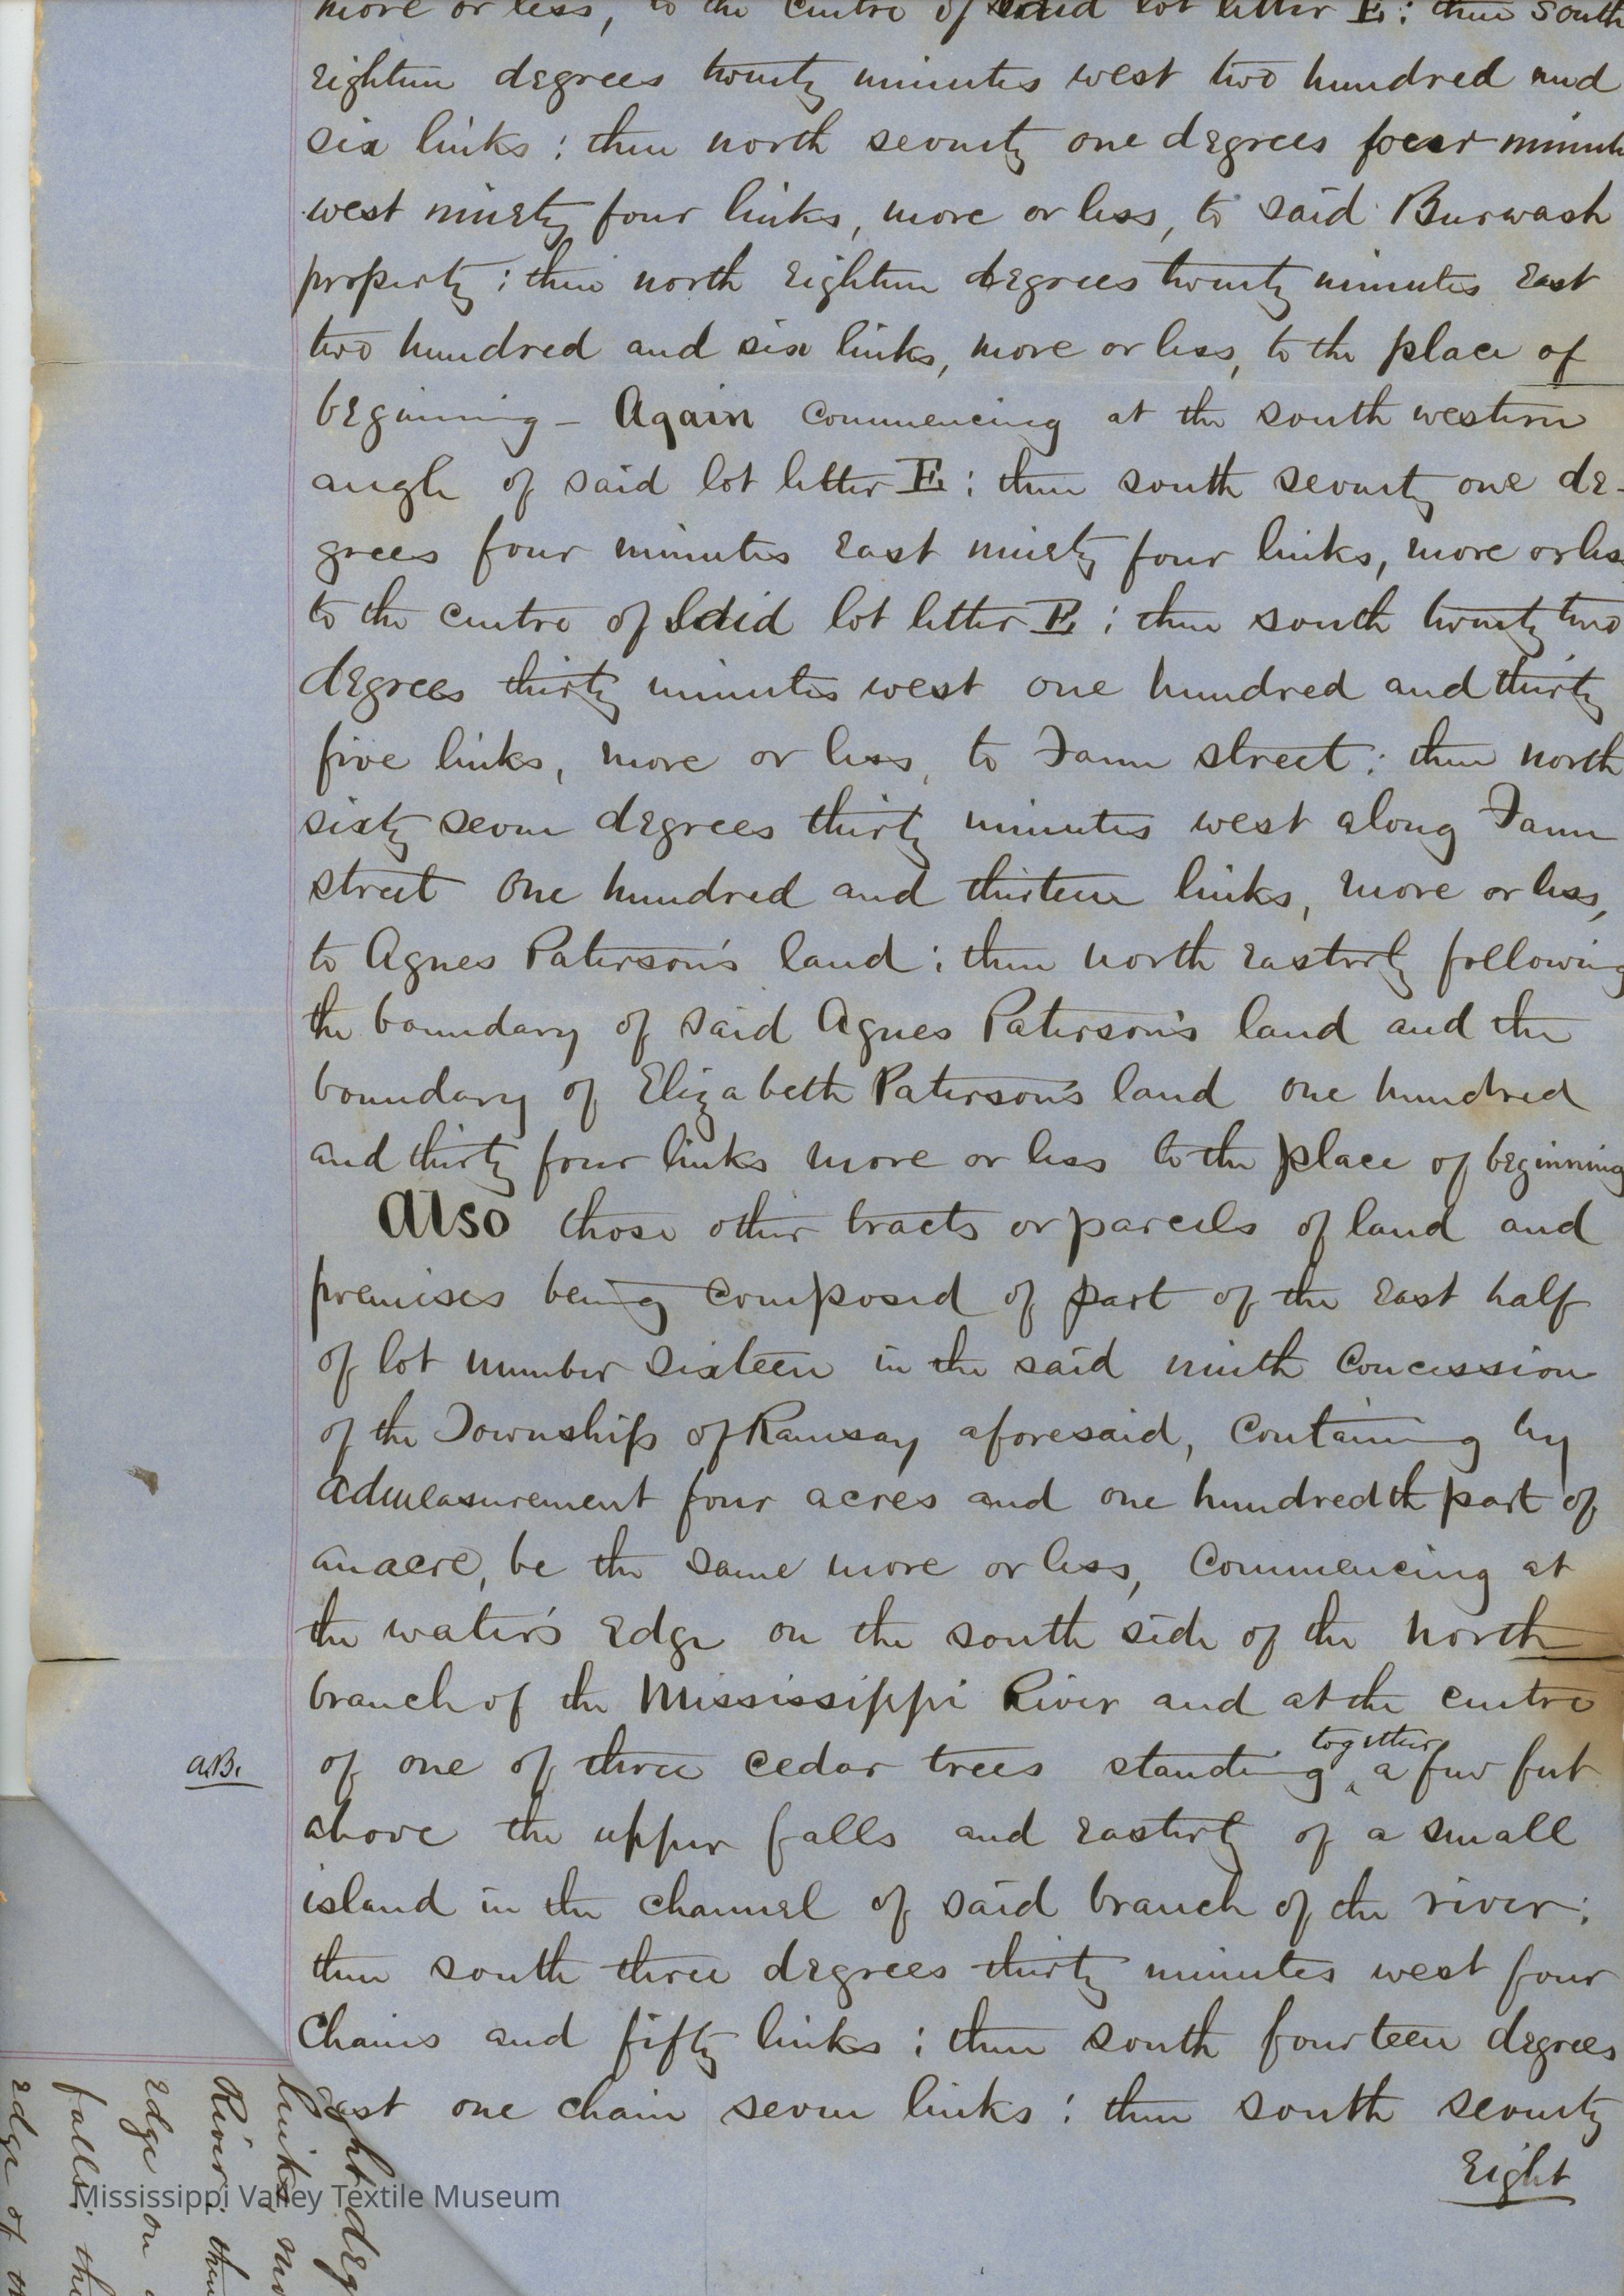 more or less, to the centre of said lot letter E; then South
eighteen degrees twenty minutes west two hundred and
six links; then north seventy one degrees four minute
west ninety four links, more or less, to said Burwash
property; then north eighteen degrees twenty minutes east
two hundred and six links, more or less, to the place of
beginning - Again commencing at the south western
angle of said lot letter E; then south seventy one de-
grees four minutes east ninety four links, more or less
to the centre of said lot letter E; then south twenty two
degrees thirty minutes west one hundred and thirty
five links, more or less, to Fann street; then north
sixty seven degrees thirty minutes west along Fann
street one hundred and thirteen links, more or less,
to Agnes Paterson's land; then north easterly following
the boundary of said Agnes Paterson's land and the
boundary of Elizabeth Paterson's land one hundred
and thirty four links more or less to the place of beginning
Also those other tracts or parcels of land and
premises being composed of part of the east half
of lot number sixteen in the said ninth Concession
of the Township of Ramsay aforesaid, containing by
admeasurement four acres and one hundredth part of
an acre, be the same more or less, Commencing at
the water's edge on the south side of the north
branch of the Mississippi River and at the centre
a.B. of one of three cedar trees standing together a few feet
above the upper falls and easterly of a small
island in the channel of said branch of the river;
then south three degrees thirty minutes west four
Chains and fifty links; then south fourteen degrees
east one chain seven links; then south seventy
Eight
ght deg
links, mo
River; then
edge on
falls; the
edge of
Mississippi Valley Textile Museum